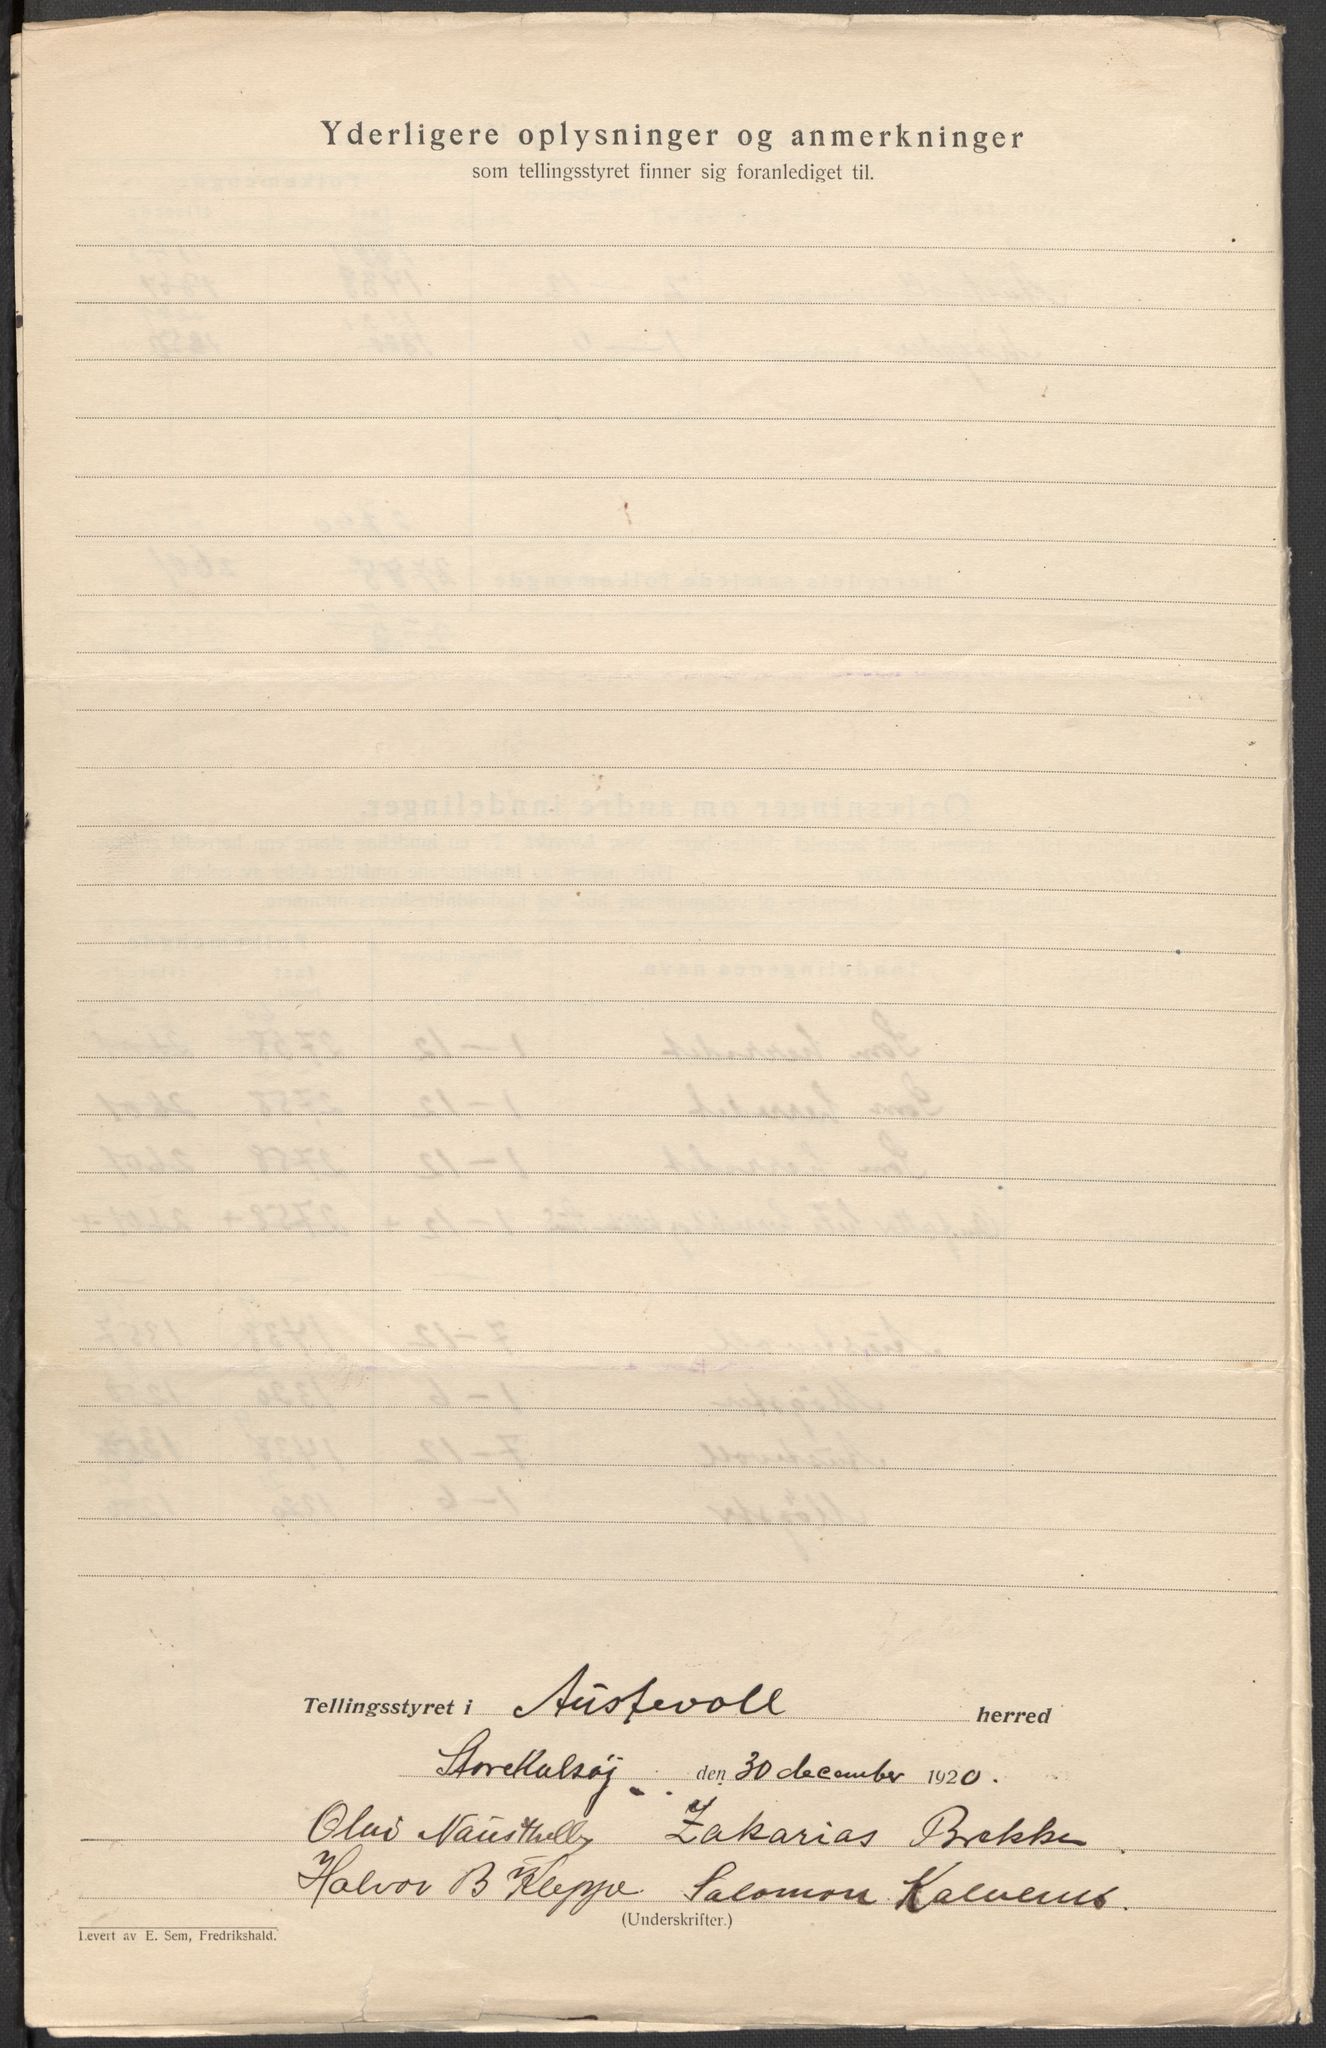 Yderligere oplysninger og anmerkninger
som tellingsstyret finner sig foranlediget til.
Tellingsstyret i Austevoll herred
Storekalsøy den 30 december 1920.
Olai Zakarias Brekke
Halvor B Kleppe Salomon Kalvenes.
(Underskrifter.)
Levert av E. Sem, Fredrikshald.